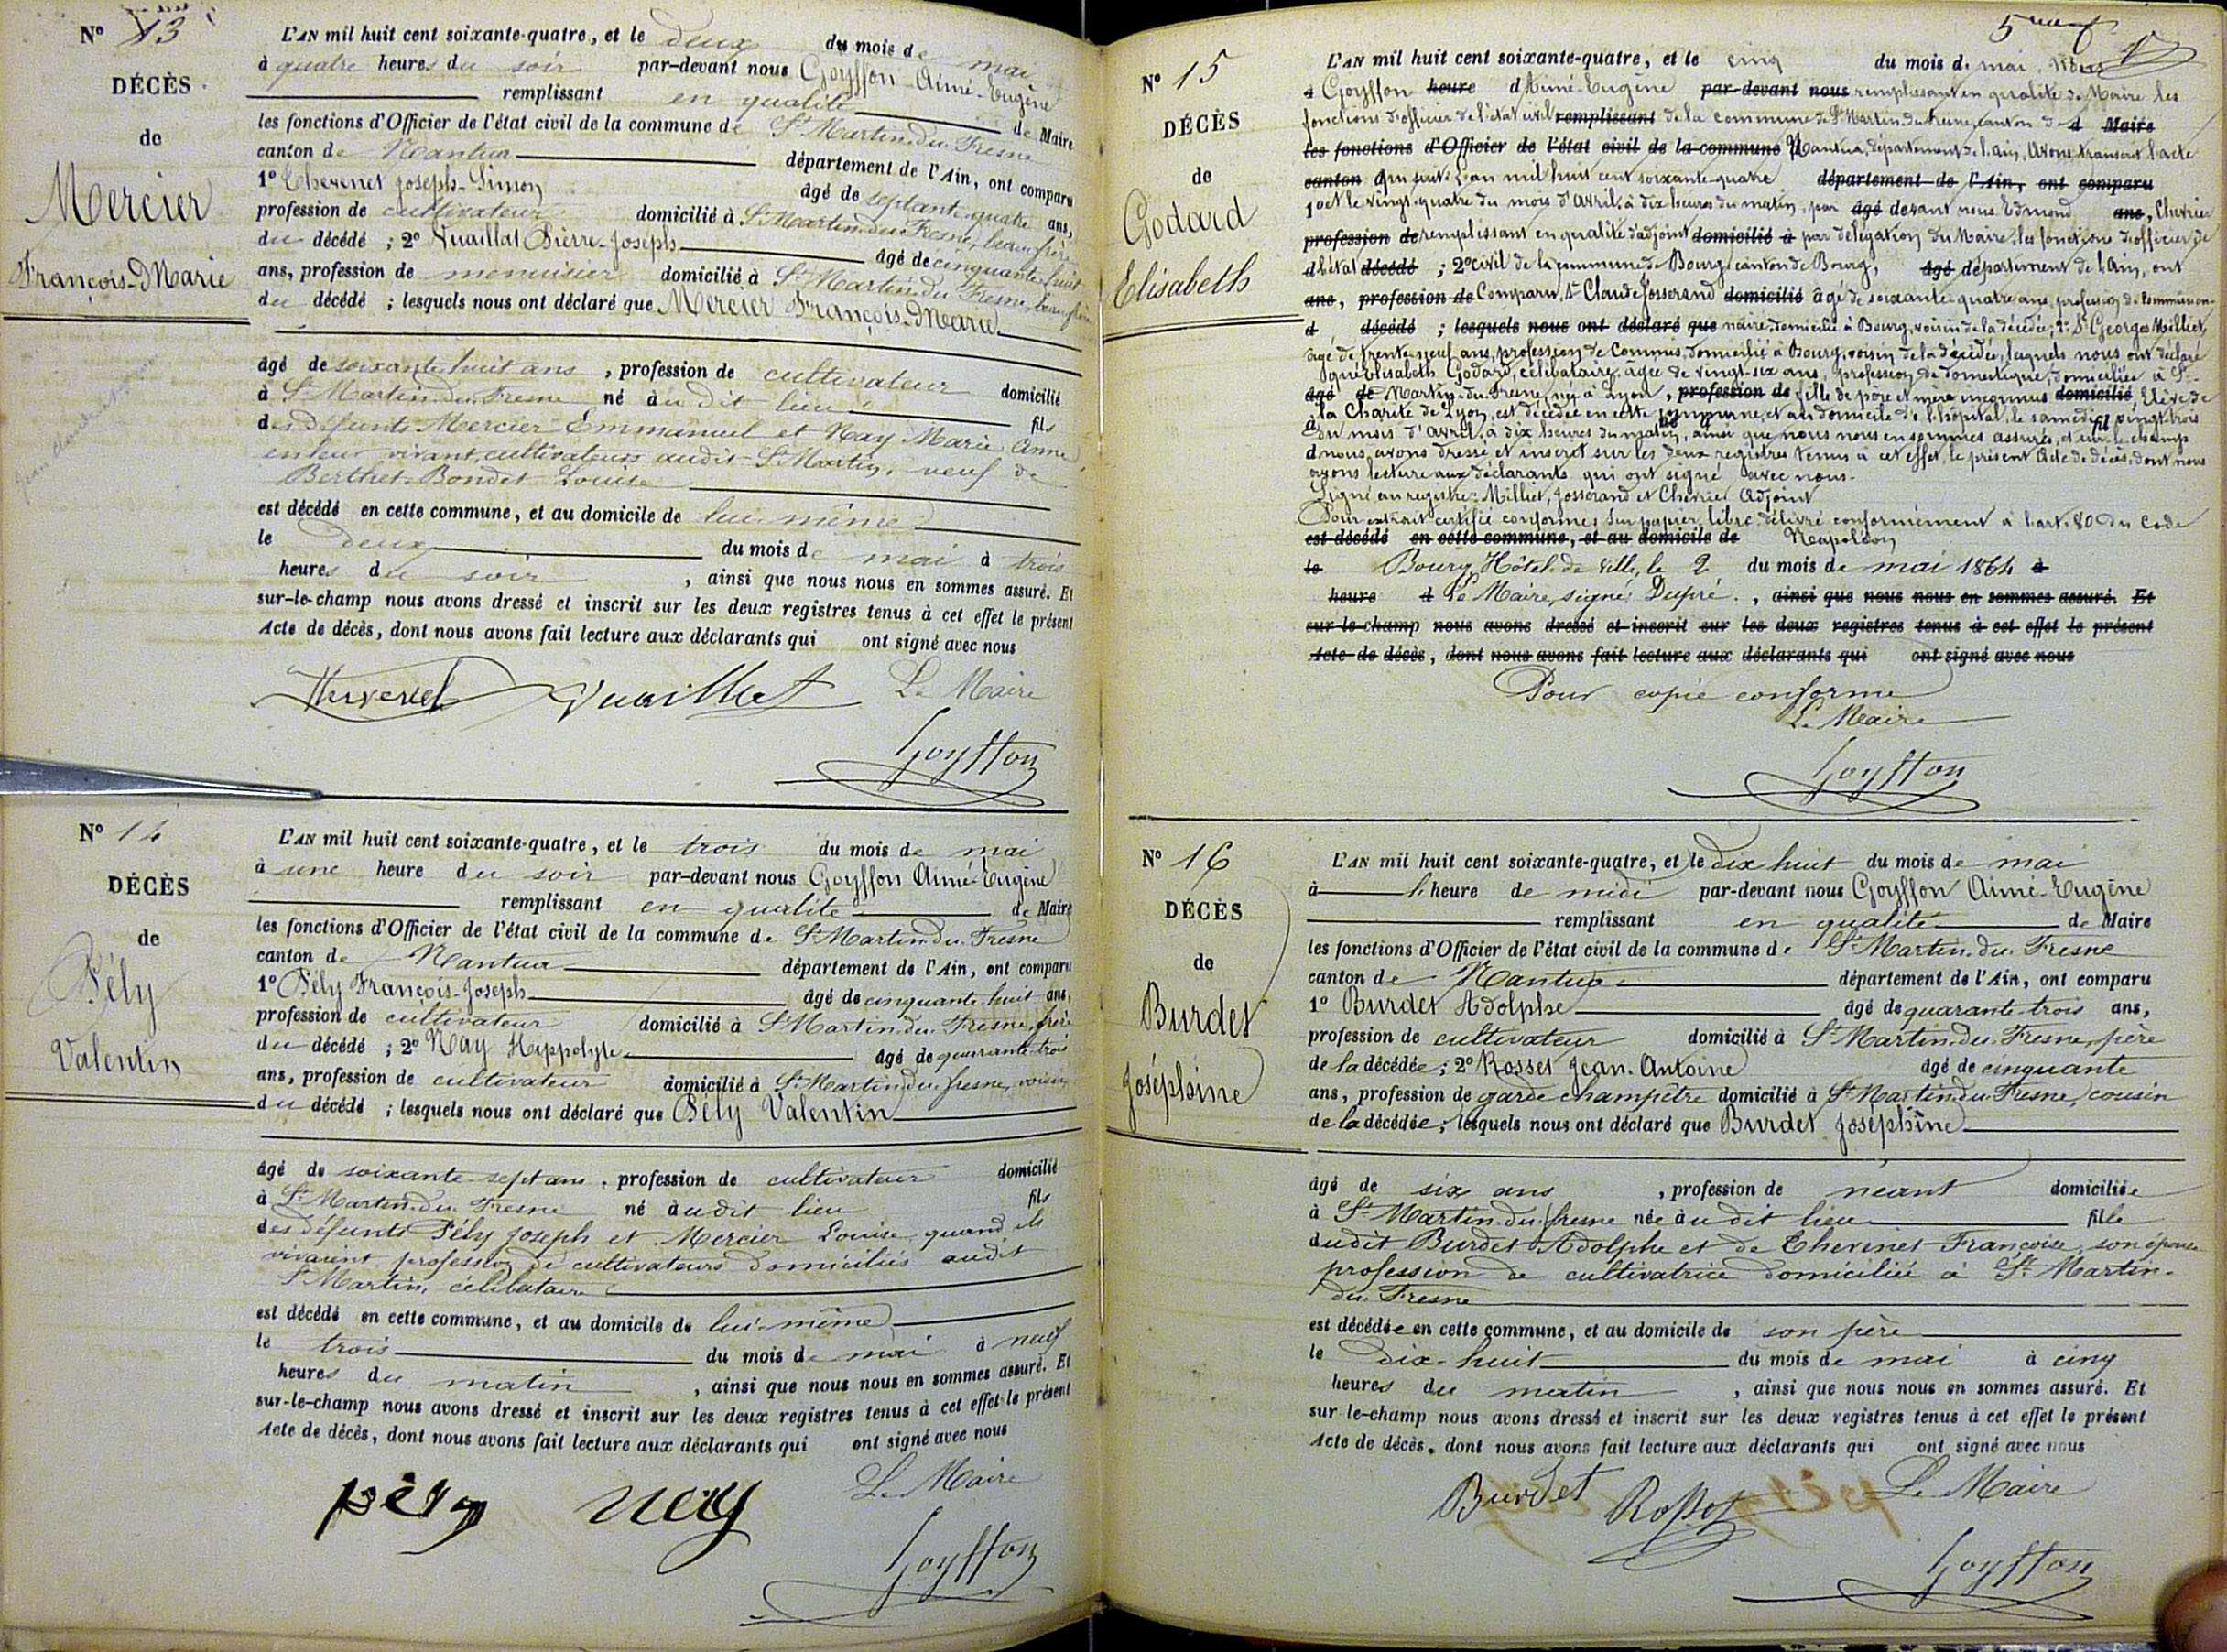 N° 13
DÉCÈS
de
Mercier
François-Marie
L'AN mil huit cent soixante-quatre, et le deux du mois de mai
à quatre heures du soir par-devant nous Goyffon Aimé-Eugène
remplissant en qualité de Maire
les fonctions d'Officier de l'état civil de la commune de St Martin-du-Fresne
canton de Nantua département de l'Ain, ont comparu
1° Chevenet Joseph-Simon âgé de septante-quatre ans,
profession de cultivateur domicilié à St Martin-du-Fresne, beau-frère
du décédé ; 2° Vuaillat Pierre-Joseph âgé de cinquante-huit
ans, profession de menuisier domicilié à St Martin-du-Fresne, beau-frère
du décédé ; lesquels nous ont déclaré que Mercier François-Marie
âgé de soixante huit ans , profession de cultivateur domicilié
à St Martin-du-Fresne né àu dit lieu fils
des défunts Mercier Emmanuel et Nay Marie Anne
en leur vivant cultivateurs audit St Martin, veuf de
Berthet-Bondet Louise
est décédé en cette commune, et au domicile de lui-même
le deux du mois de mai à trois
heures du soir , ainsi que nous nous en sommes assuré. Et
sur-le-champ nous avons dressé et inscrit sur les deux registres tenus à cet effet le présent
Acte de décès, dont nous avons fait lecture aux déclarants qui ont signé avec nous
Vuaillat Le Maire
Goyffon
N° 14
DÉCÈS
de
Pély
Valentin
L'AN mil huit cent soixante-quatre, et le trois du mois de mai
à une heure du soir par-devant nous Goyffon Aimé-Eugène
remplissant en qualité de Maire
les fonctions d'Officier de l'état civil de la commune de St Martin-du-Fresne
canton de Nantua département de l'Ain, ont comparu
1° Pély François-Joseph âgé de cinquante-huit ans,
profession de cultivateur domicilié à St Martin-du-Fresne, frère
du décédé ; 2° Nay Hippolyte âgé de quarante-trois
ans, profession de cultivateur domicilié à St Martin du fresne, voisin
du décédé ; lesquels nous ont déclaré que Pély Valentin
âgé de soixante sept ans , profession de cultivateur domicilié
à St Martin-du-Fresne né àudit lieu fils
des défunts Pély Joseph et Mercier Louise quand ils
vivaient profession de cultivateurs domiciliés audit
St Martin, célibataire
est décédé en cette commune, et au domicile de lui-même
le trois du mois de mai à neuf
heures du matin , ainsi que nous nous en sommes assuré. Et
sur-le-champ nous avons dressé et inscrit sur les deux registres tenus à cet effet le présent
Acte de décès, dont nous avons fait lecture aux déclarants qui ont signé avec nous
pély nay Le Maire
Goyffon
N° 15
DÉCÈS
de
Godard
Elisabeth
L'AN mil huit cent soixante-quatre, et le cinq du mois de mai Nous
à Goyffon heure d Aimé-Eugène par-devant nous remplissant en qualité de Maire les
fonctions d'officier de l'état civil remplissant de la commune de St Martin-du-Fresne, canton de d Maire
les fonctions d'Officier de l'état civil de la commune Nantua, département de l'ain, Avons transcrit l'acte
canton qui suit: L'an mil huit cent soixante-quatre département de l'Ain, ont comparu
1° et le vingt-quatre du mois d'avril, à dix heures du matin, par âgé devant nous Edmond ans, Chevrier
profession de remplissant en qualité d'adjoint domicilié à par délégation du Maire, les fonctions d'officier de
d l'état décédé ; 2° civil de la commune de Bourg, canton de Bourg, âgé département de l'Ain, ont
ans, profession de Comparu, 1° Claude Josserand domicilié âgé de soixante-quatre ans, profession de commission-
d décédé ; lesquels nous ont déclaré que naire, domicilié à Bourg, voisin de la décédée; 2° St Georges Milliet,
âgé de trente-neuf ans, profession de Commis, domicilié à Bourg, voisin de la décédée, lesquels nous ont déclaré
qu'Elisabeth Godard, célibataire, âgée de vingt-six ans, profession de domestique, domiciliée à St-
âgé de Martin-du-Fresne, née à Lyon, profession de fille de père et mère inconnus domicilié Elève de
à la Charité de Lyon, est décédée en cette commune, et au domicile de l'hôpital, le samedi vingt-trois
du mois d'avril, à dix heures du matin, ainsi que nous nous en sommes assurés, et sur le champ
d nous avons dressé et inscrit sur les deux registres tenus à cet effet, le présent Acte de décès, dont nous
avons lecture aux déclarants qui ont signé avec nous.
Signé au registre: Milliet, Josserand et Chevrier Adjoint
Pour extrait certifié conforme, sur papier libre, délivré conformément à l'art. 80 du Code
est décédé en cette commune, et au domicile de Napoléon
le Bourg, Hôtel-de-ville, le 2 du mois de mai 1864 à
heure d Le Maire, signé: Dupré. , ainsi que nous nous en sommes assuré. Et
sur-le-champ nous avons dressé et inscrit sur les deux registres tenus à cet effet le présent
Acte de décès, dont nous avons fait lecture aux déclarants qui ont signé avec nous
Pour copie conforme
Le Maire
Goyffon
N° 16
DÉCÈS
de
Burdet
Joséphine
L'AN mil huit cent soixante-quatre, et le dix huit du mois de mai
à l'heure de midi par-devant nous Goyffon Aimé-Eugène
remplissant en qualité de Maire
les fonctions d'Officier de l'état civil de la commune de St Martin-du-Fresne
canton de Nantua département de l'Ain, ont comparu
1° Burdet Adolphe âgé de quarante-trois ans,
profession de cultivateur domicilié à St Martin-du-Fresne, père
de la décédée ; 2° Rosset Jean-Antoine âgé de cinquante
ans, profession de garde champêtre domicilié à St Martin-du-Fresne, cousin
de la décédée ; lesquels nous ont déclaré que Burdet Joséphine
âgé de six ans , profession de néant domiciliée
à St Martin-du-fresne née àu dit lieu fille
dudit Burdet Adolphe et de Chevenet Françoise, son épouse
profession de cultivatrice domiciliée à St Martin-
du-Fresne
est décédée en cette commune, et au domicile de son père
le dix-huit du mois de mai à cinq
heures du matin , ainsi que nous nous en sommes assuré. Et
sur le-champ nous avons dressé et inscrit sur les deux registres tenus à cet effet le présent
Acte de décès, dont nous avons fait lecture aux déclarants qui ont signé avec nous
Burdet Rosset Le Maire
Goyffon